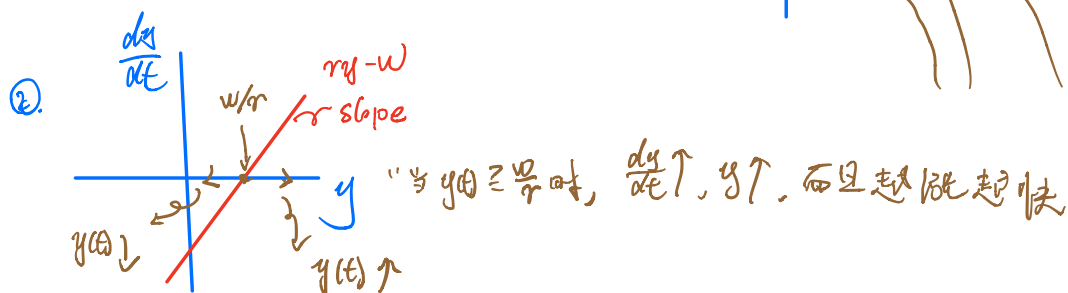 ②.
dy/dt
ry-w
r slope
w/r
y
y(t)↓
y(t)↑
"当 y(t) ≥ w/r 时, dy/dt↑, y↑, 而且越涨越快